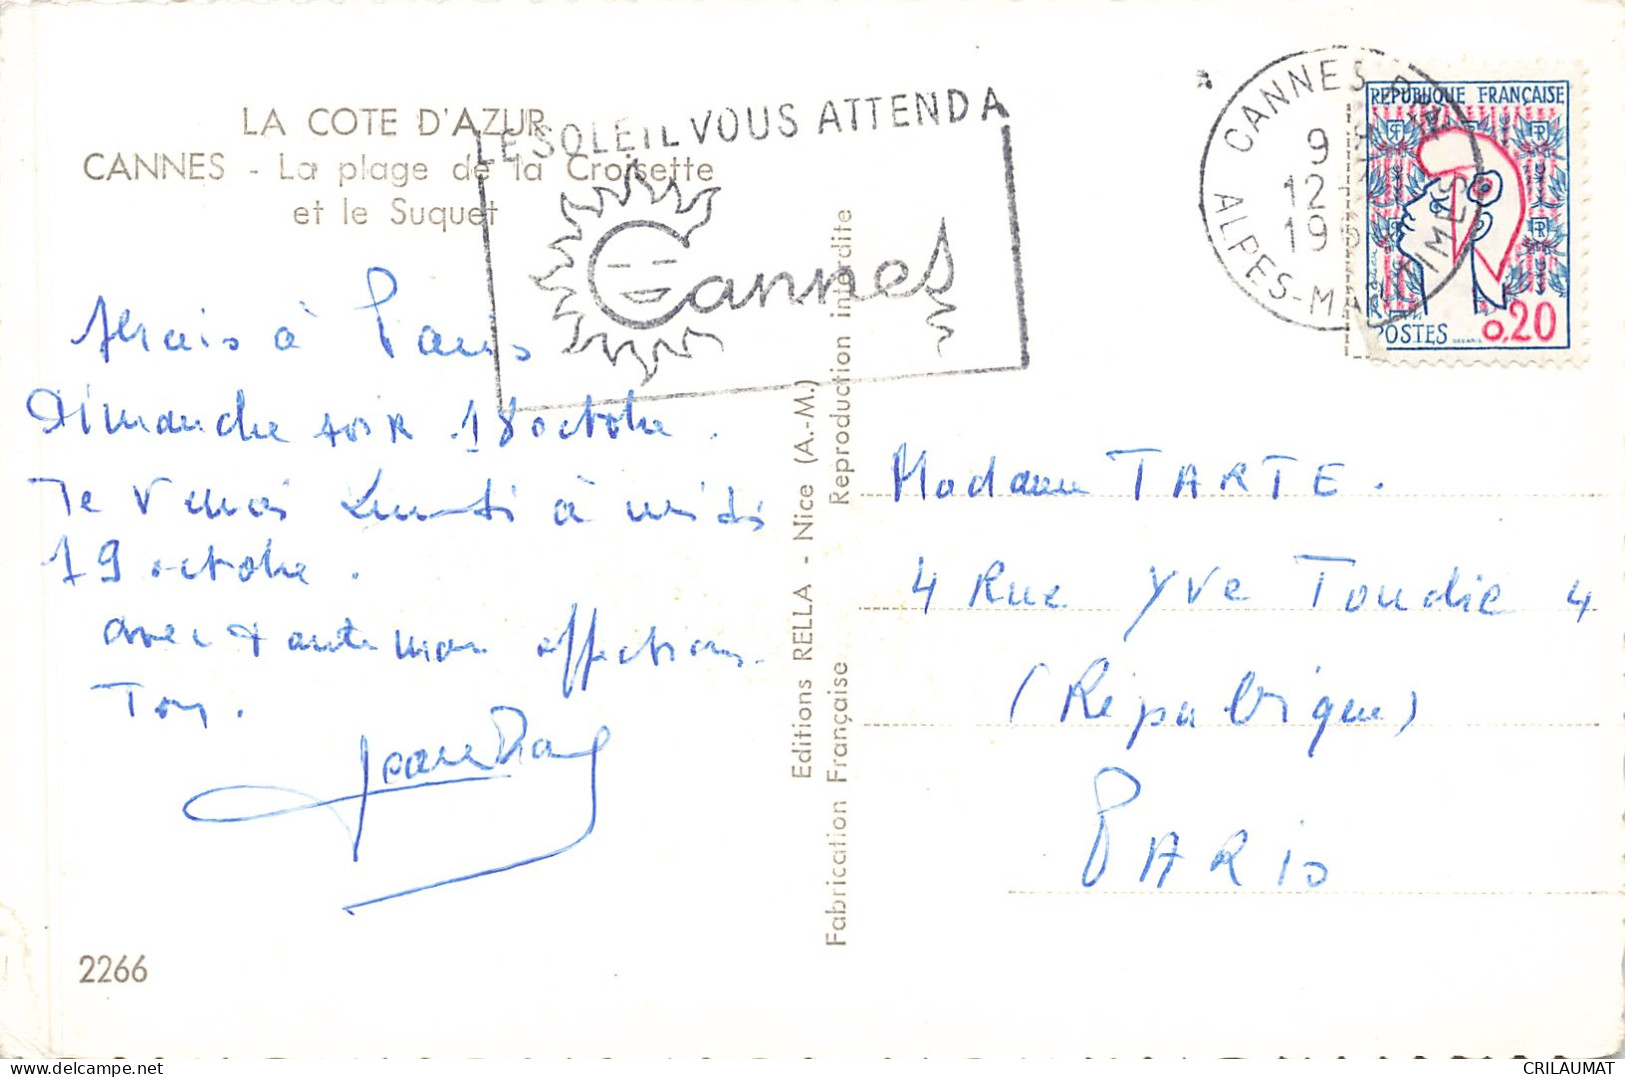 LA COTE D'AZUR
CANNES - La plage de la Croisette
et le Suquet
LE SOLEIL VOUS ATTEND A
Cannes
CANNES
9
12
196
ALPES-MARITIMES
REPUBLIQUE FRANÇAISE
RF
RF
POSTES
0,20
serais à Paris
Dimanche soir 18 octobre.
Te verrai Lundi à midi
19 octobre.
avec toute mon affection.
Ton.
2266
Editions RELLA - Nice (A.-M.)
Fabrication Française
Reproduction interdite
Madame TARTE.
4 Rue Yve Toudic 4
(République)
PARIS
CRILAUMAT